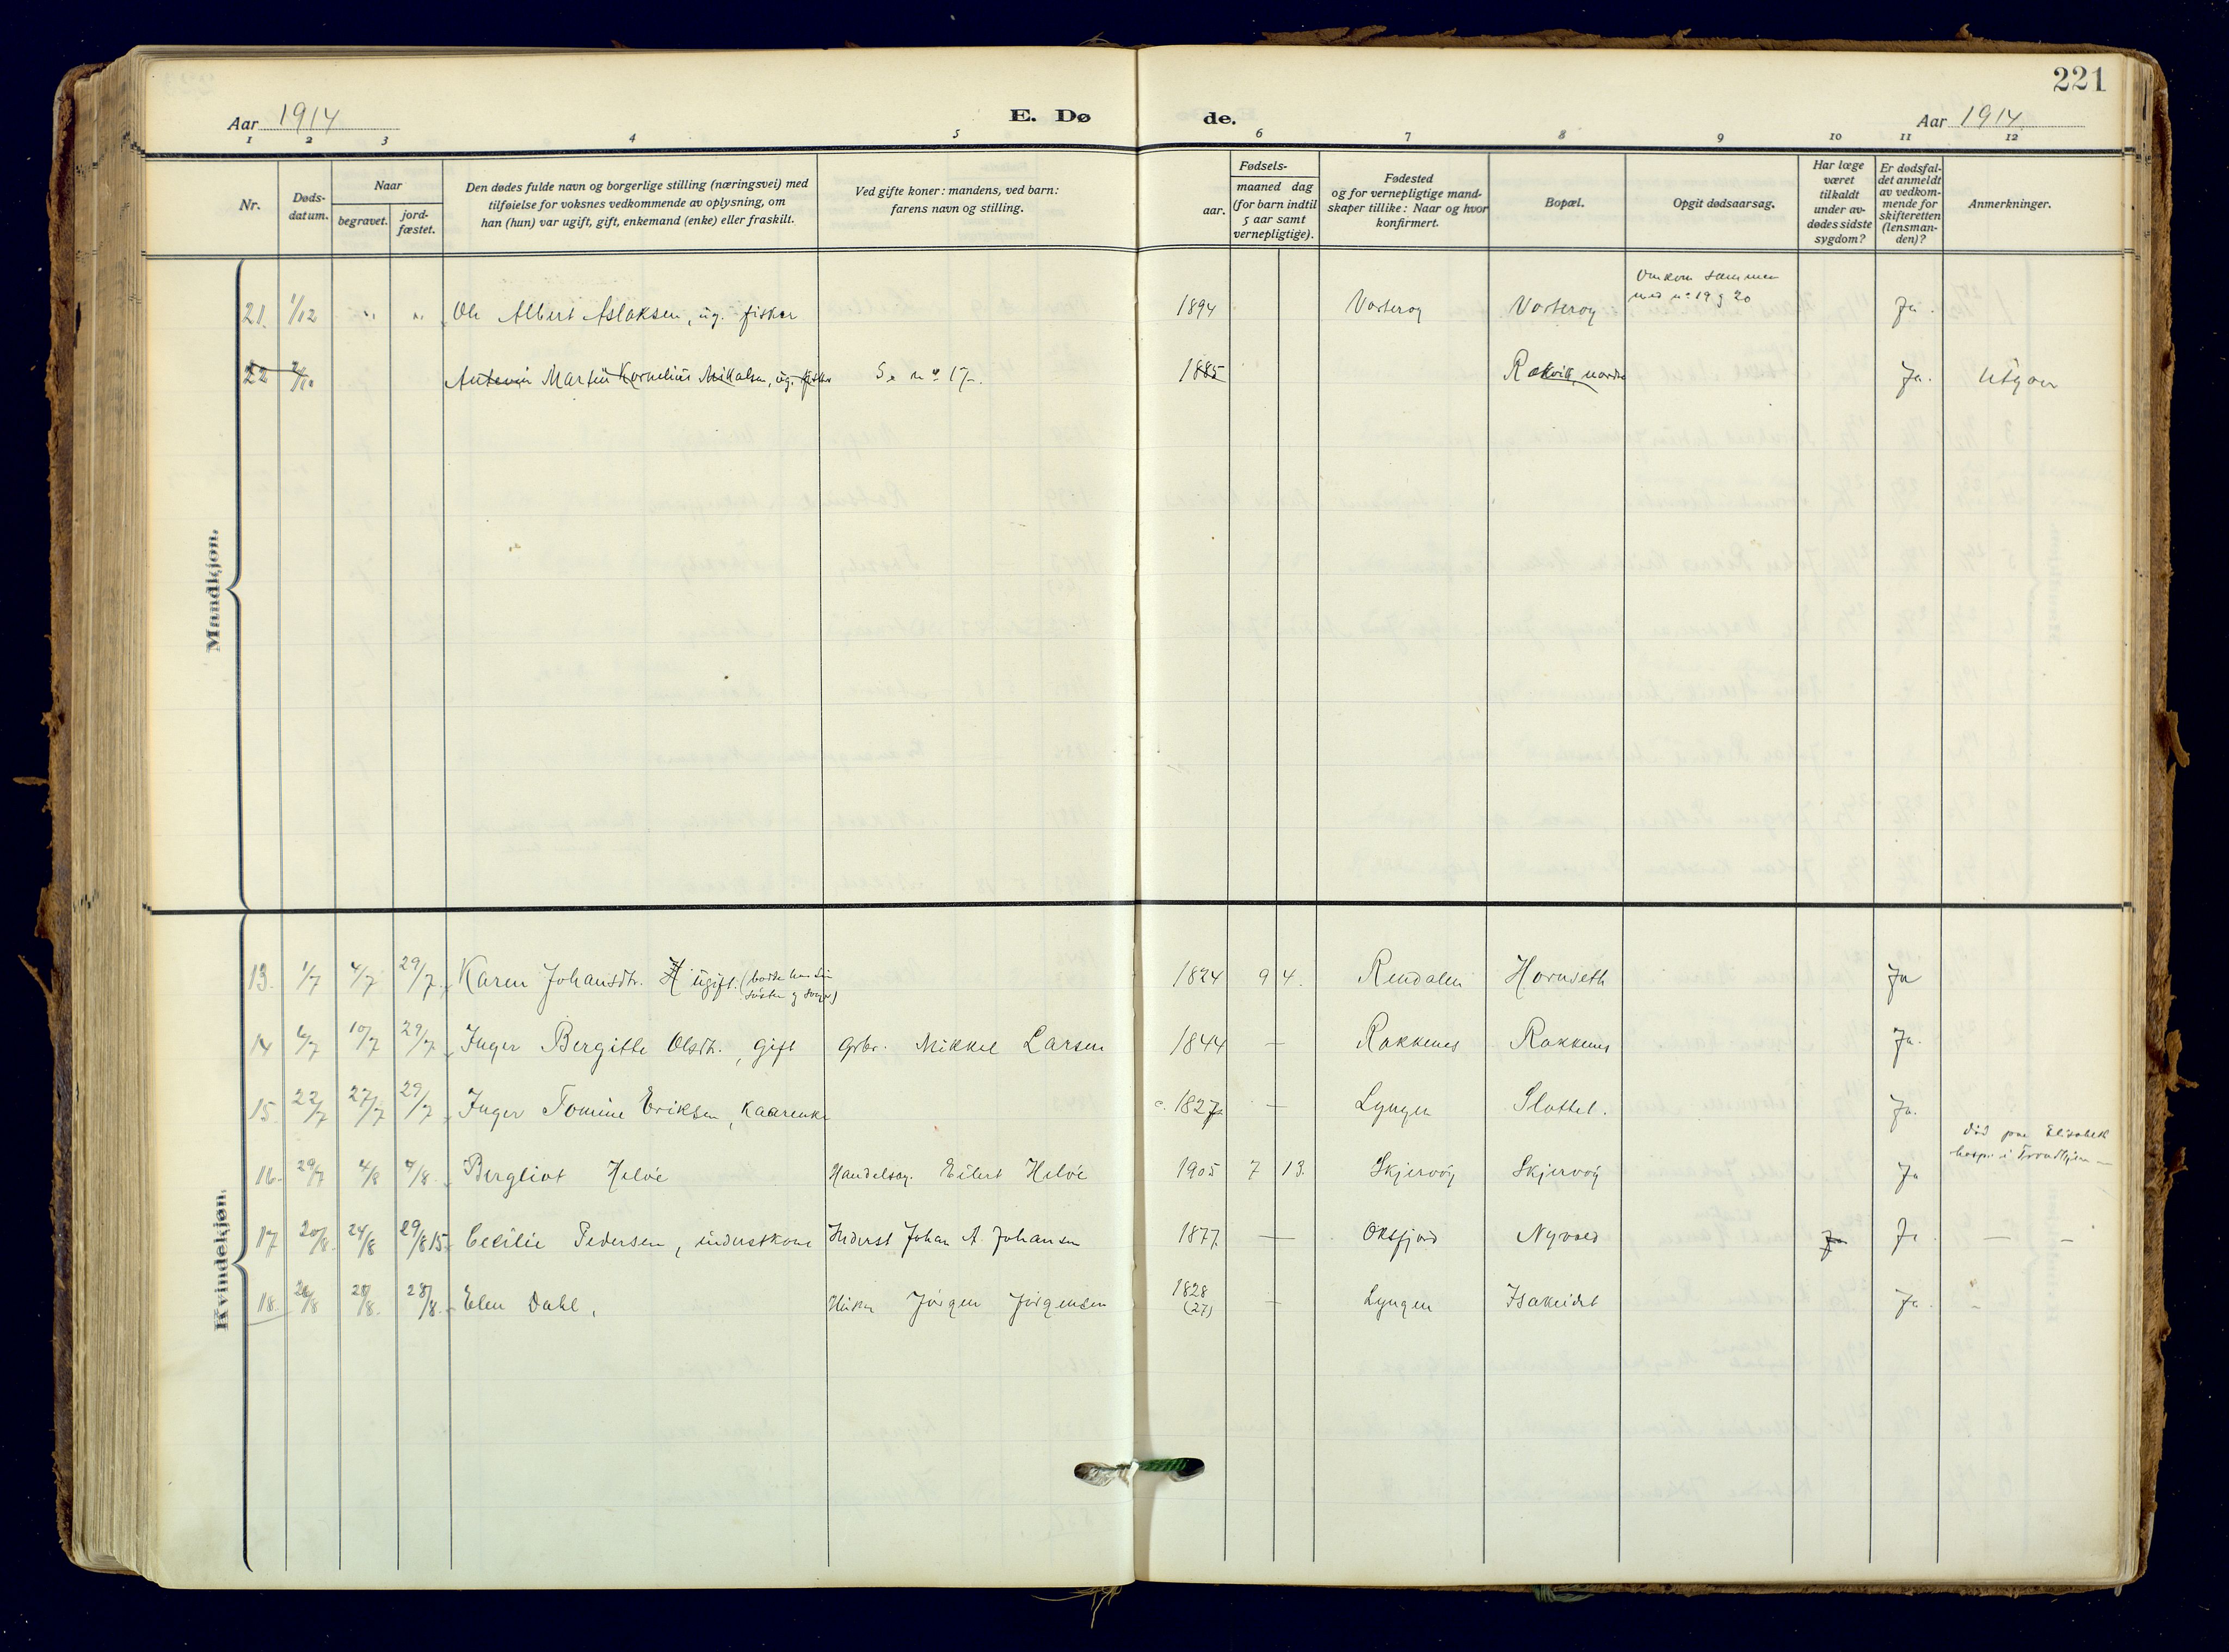 221
Aar 1914
E. Dø
de.
Aar 1914
1 2 3 4 5 6 7 8 9 10 11 12
Nr.
Døds-
datum.
Naar
begravet.
jord-
fæstet.
Den dødes fulde navn og borgerlige stilling (næringsvei) med
tilføielse for voksnes vedkommende av oplysning, om
han (hun) var ugift, gift, enkemand (enke) eller fraskilt.
Ved gifte koner: mandens, ved barn:
farens navn og stilling.
Fødsels-
aar.
maaned dag
(for barn indtil
5 aar samt
vernepligtige).
Fødested
og for vernepligtige mand-
skaper tillike: Naar og hvor
konfirmert.
Bopæl.
Opgit dødsaarsag.
Har læge
været
tilkaldt
under av-
dødes sidste
sygdom?
Er dødsfal-
det anmeldt
av vedkom-
mende for
skifteretten
(lensman-
den)?
Anmerkninger.
Mandkjøn.
Omkom sammen
med no 19 g 20
21. 1/12 " " Ole Albert Aslaksen, ug. fisker 1894 Vorterøy Vorterøy Ja.
22 2/10 Martin Kornelius Mikalsen, ug. fisker Se no 17. 1885 Rakvik, nordre Ja. Utgaar
Kvindekjøn.
13. 1/7 4/7 29/7 Karen Johansdtr. H ugift. (bodde hos sin 1824 9 4. Rendalen Hornseth Ja
søster g svoger)
14 6/7 10/7 29/7 Inger Bergitte Olsdtr., gift Gbr. Mikkel Larsen 1844 — Rakkenes Rakkenes Ja.
15. 22/7 27/7 29/7 Inger Tomine Eriksen, Kaarenke c. 1827 — Lyngen Slottet. Ja.
død paa Elisabeth
hospi. i Trondhjem —
16. 29/7 4/8 4/8. Bergliot Heløe Handelsag. Eilert Heløe 1905 7 13. Skjervøy Skjervøy Ja
17 20/8. 24/8 29/8 15. Cecilie Pedersen, inderstkone Inderst Johan A. Johansen 1877. — Oksfjord Nyvoll Ja Ja. — —
18. 26/8 28/8. 28/8. Elen Dahl, Jørgen Jørgensen 1828 — Lyngen Isakeidet Ja. —
(27)